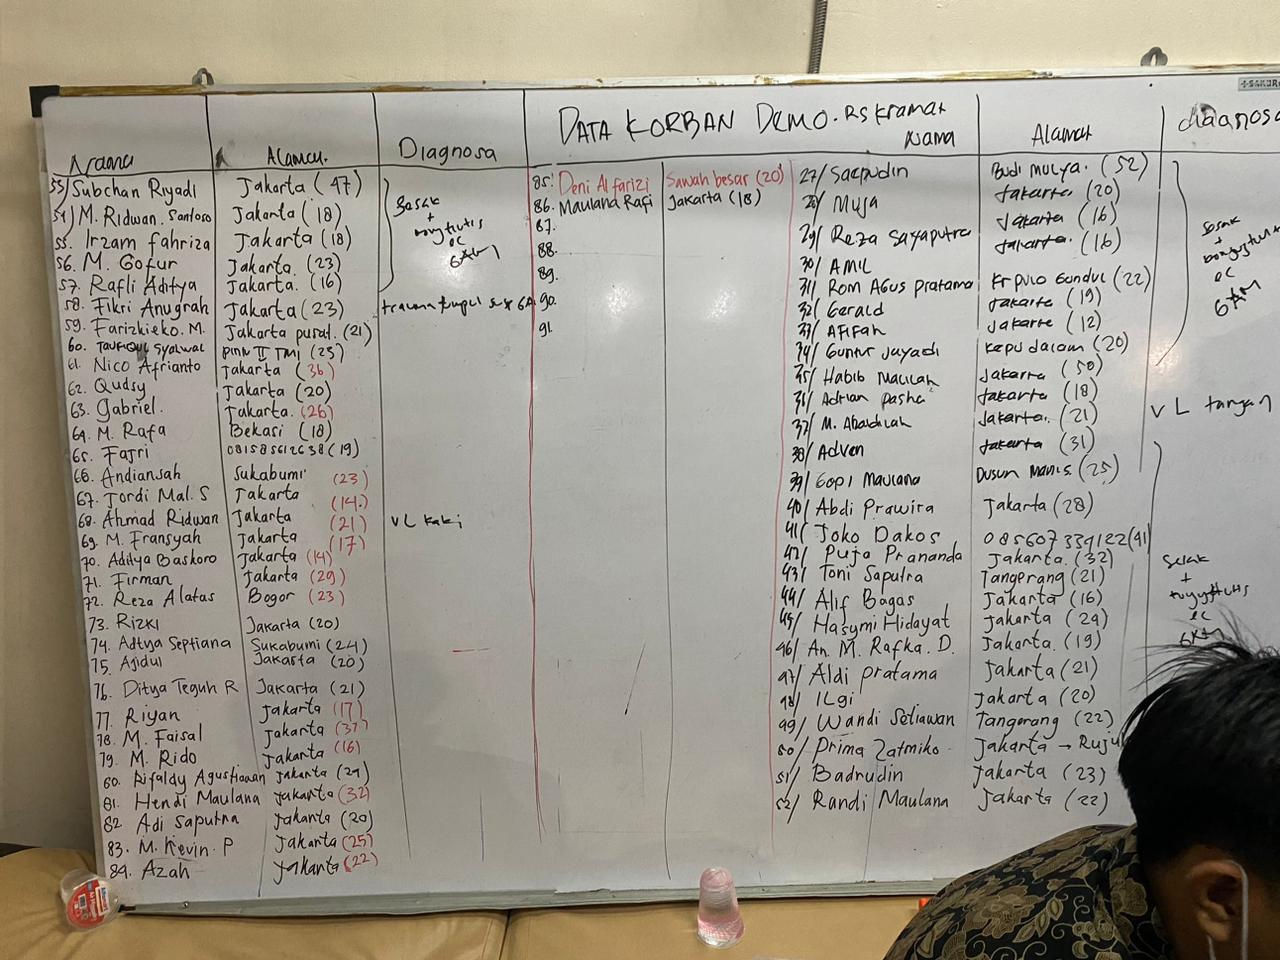 DATA KORBAN DEMO. RS Kramat
Nama Diagnosa Nama Alamat diagnosa
53/ Subchan Riyadi Jakarta (47)
54/ M. Ridwan. Santoso Jakarta (18)
55. Irzam fahriza Jakarta (18)
56. M. Gofur Jakarta. (23)
57. Rafli Aditya Jakarta. (16)
58. Fikri Anugrah Jakarta (23)
59. Farizkieko. M. Jakarta pusat. (21)
60. Syalwal
61. Nico Afrianto Jakarta (36)
62. Qudsy Jakarta (20)
63. Gabriel. Jakarta. (26)
64. M. Rafa Bekasi (18)
65. Fajri 081585612638 (19)
66. Andiansah Sukabumi (23)
67. Jordi Mal. S Jakarta (14.)
68. Ahmad Ridwan Jakarta (21) VL kaki
69. M. Fransyah Jakarta (17)
70. Aditya Baskoro Jakarta (14)
71. Firman Jakarta (29)
72. Reza Alatas Bogor (23)
73. Rizki Jakarta (20)
74. Aditya Septiana Sukabumi (24)
75. Ajidul Jakarta (20)
76. Ditya Teguh R Jakarta (21)
77. Riyan Jakarta (17)
78. M. Faisal Jakarta (37)
79. M. Rido Jakarta (16)
80. Rifaldy Agustiawan Jakarta (24)
81. Hendi Maulana Jakarta (32)
82 Adi Saputra Jakarta (20)
83. M. Kevin. P Jakarta (25)
84. Azah Jakarta (22)
Sesak
+
ec
trauma tumpul
85. Deni Alfarizi Sawah besar (20)
86. Maulana Rafi Jakarta (18)
87.
88.
89.
90.
91.
27/ Saepudin Budi Mulya. (52)
28/ Muja Jakarta. (20)
29/ Reza Sayaputra Jakarta (16)
30/ AMIL Jakarta. (16)
31/ Rom Agus pratama Kr pulo Gundul (22)
32/ Gerald Jakarta (19)
33/ Afifah Jakarta (12)
34/ Guntur Jayadi Kepu dalam (20)
35/ Habib Maulah Jakarta (50)
36/ Adrian pasha Jakarta (18)
37/ M. Jakarta. (21)
38/ Adven Jakarta (31)
39/ Gopi Maulana Dusun Manis. (25)
40/ Abdi Prawira Jakarta (28)
41/ Joko Dakos 085607339122 (41)
42/ Puja Prananda Jakarta. (32)
43/ Toni Saputra Tangerang (21)
44/ Alif Bagas Jakarta (16)
45/ Hasymi Hidayat Jakarta (24)
46/ An. M. Rafka. D. Jakarta. (19)
47/ Aldi pratama Jakarta (21)
48/ ILgi Jakarta (20)
49/ Wandi Setiawan Tangerang (22)
50/ Prima Zatmiko Jakarta → Ruju
51/ Badrudin Jakarta (23)
52/ Randi Maulana Jakarta (22)
Sesak
+
ec
GAM
VL tangan
Sesak
+
ec